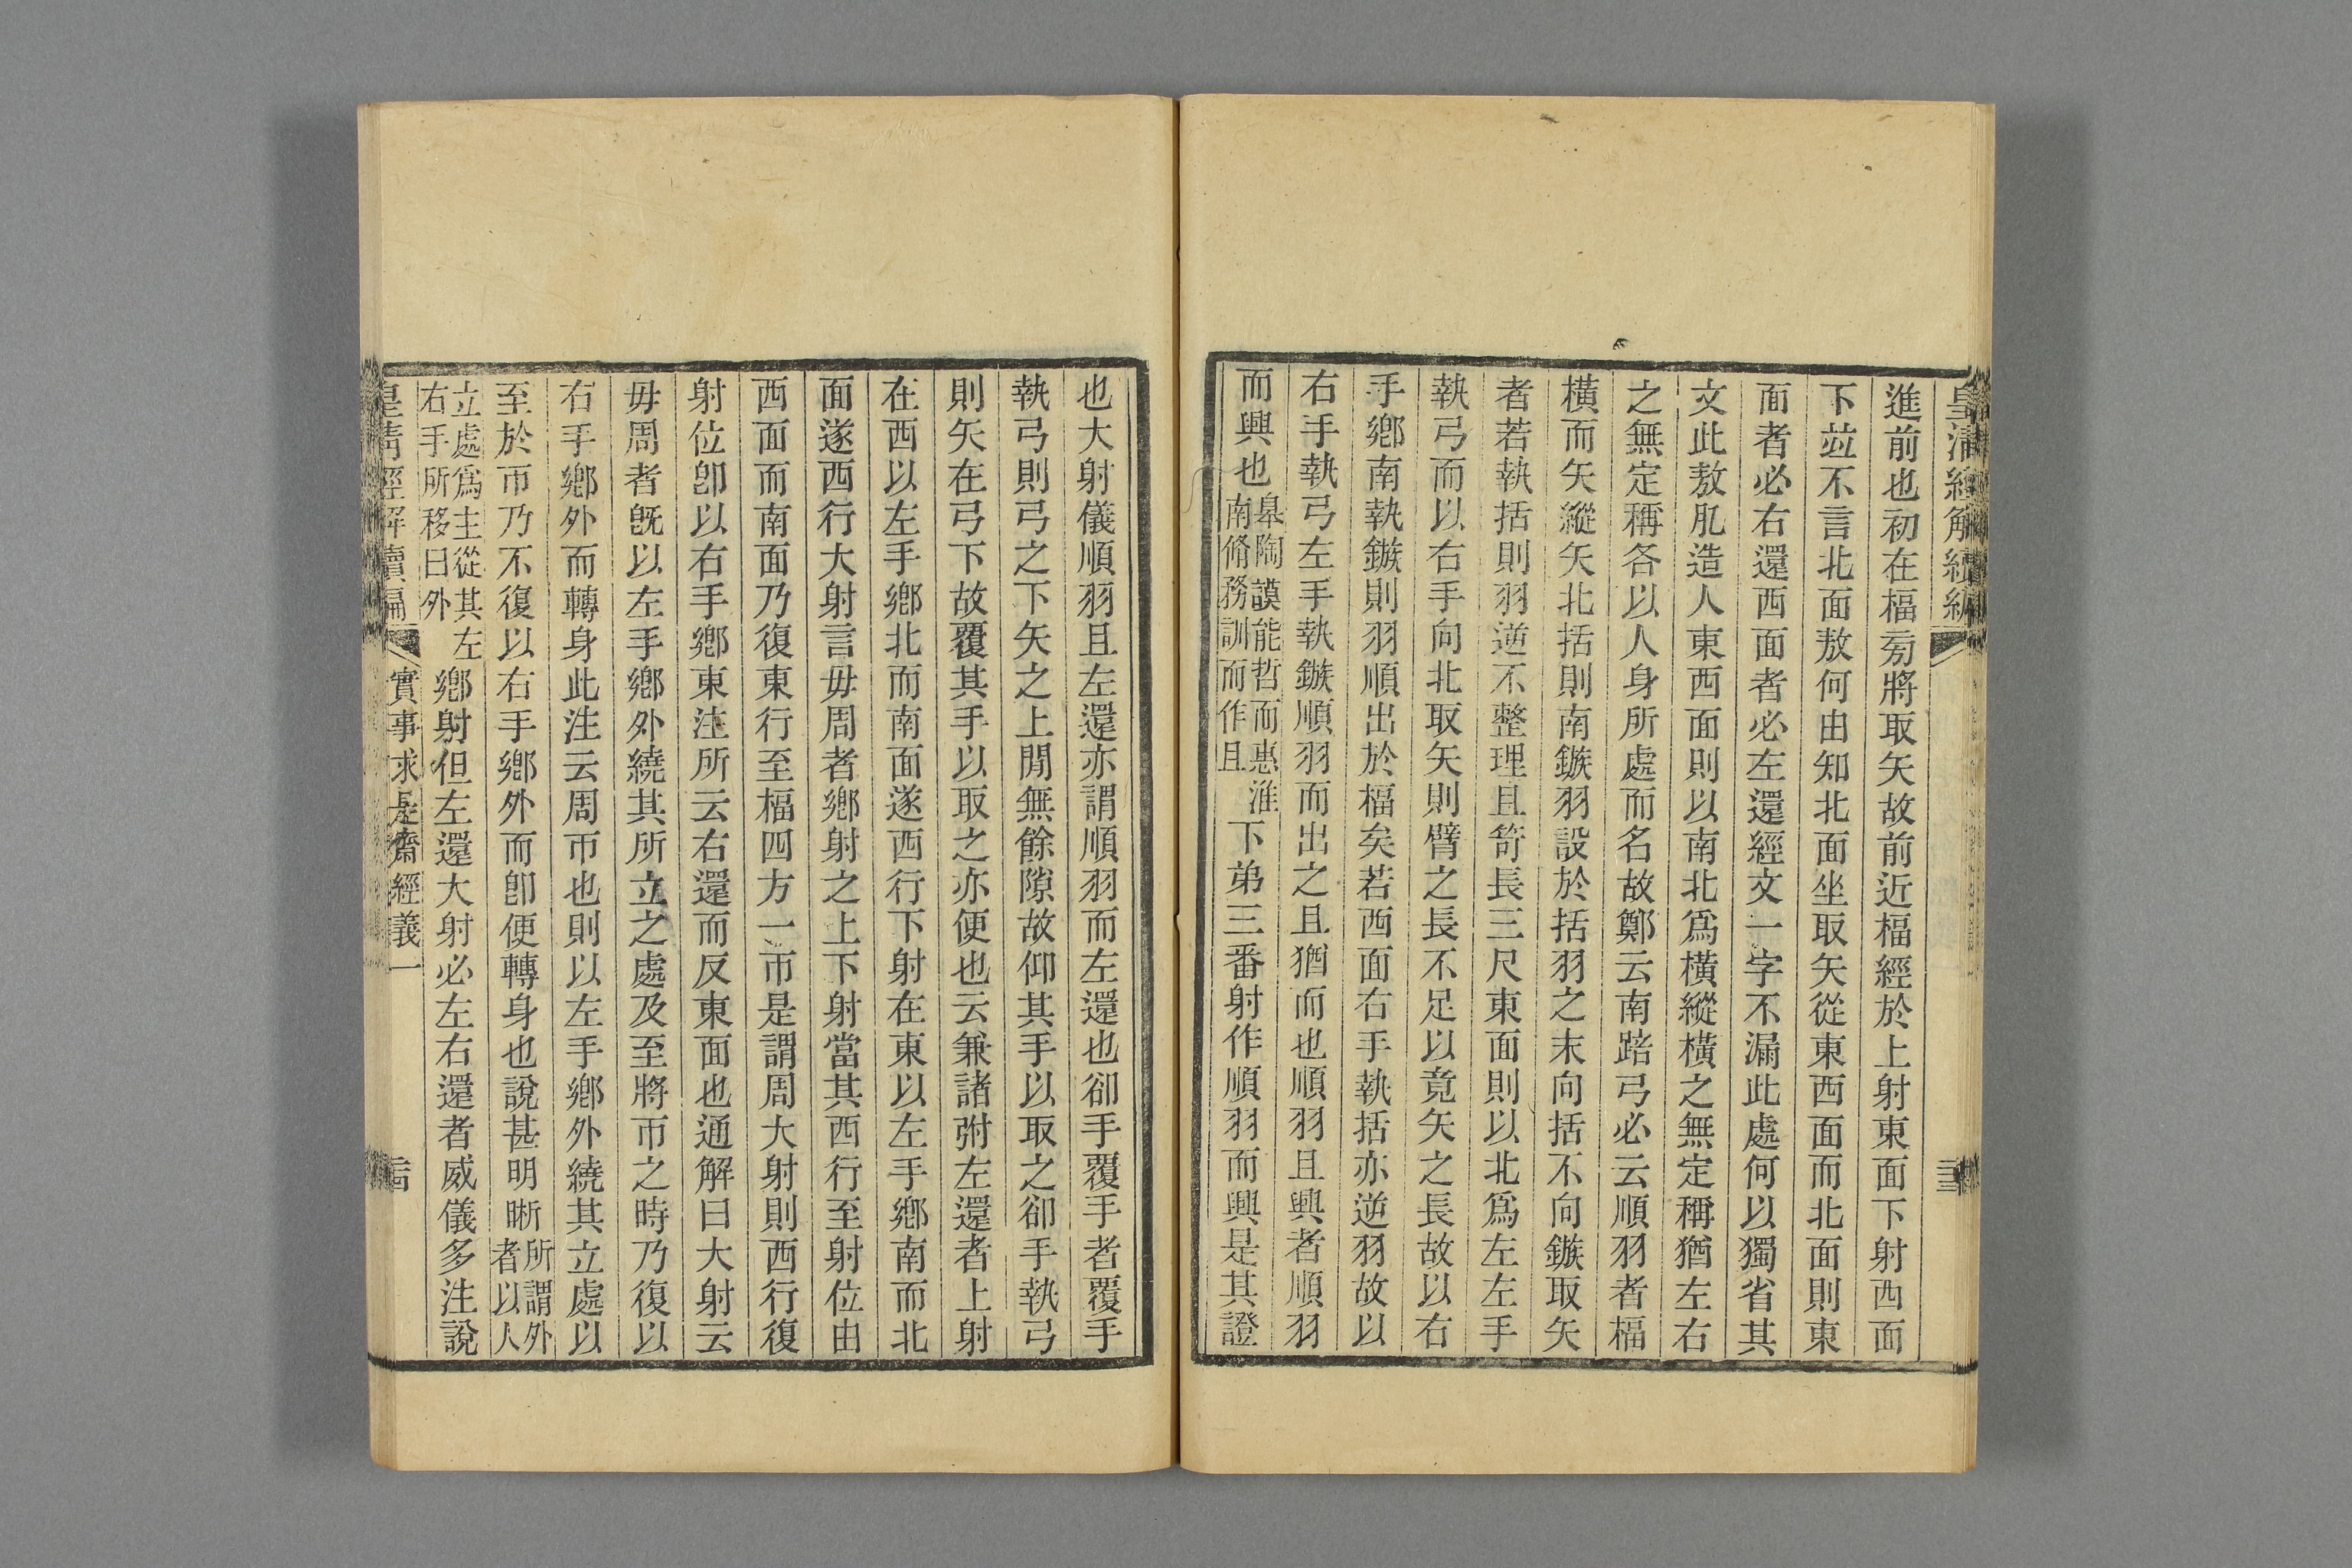 皇清經解續編
進前也初在楅旁將取矢故前近楅經於上射東面下射西面
下竝不言北面敖何由知北面坐取矢從東西面而北面則東
面者必右還西面者必左還經文一字不漏此處何以獨省其
文此敖肊造人東西面則以南北爲橫縱橫之無定稱猶左右
之無定稱各以人身所處而名故鄭云南踣弓必云順羽者楅
橫而矢縱矢北括則南鏃羽設於括羽之末向括不向鏃取矢
者若執括則羽逆不整理且笴長三尺東面則以北爲左左手
執弓而以右手向北取矢則臂之長不足以竟矢之長故以右
手鄉南執鏃則羽順出於楅矣若西面右手執括亦逆羽故以
右手執弓左手執鏃順羽而出之且猶而也順羽且興者順羽
而興也皋陶謨能哲而惠淮南脩務訓而作且下弟三番射作順羽而興是其證
也大射儀順羽且左還亦謂順羽而左還也卻手覆手者覆手
執弓則弓之下矢之上閒無餘隙故仰其手以取之卻手執弓
則矢在弓下故覆其手以取之亦便也云兼諸弣左還者上射
在西以左手鄉北而南面遂西行下射在東以左手鄉南而北
面遂西行大射言毋周者鄉射之上下射當其西行至射位由
西面而南面乃復東行至楅四方一帀是謂周大射則西行復
射位卽以右手鄉東注所云右還而反東面也通解曰大射云
毋周者旣以左手鄉外繞其所立之處及至將帀之時乃復以
右手鄉外而轉身此注云周帀也則以左手鄉外繞其立處以
至於帀乃不復以右手鄉外而卽便轉身也說甚明晰所謂外者以人
立處爲主從其左右手所移曰外鄉射但左還大射必左右還者威儀多注說
皇清經解續編 實事求是齋經義一